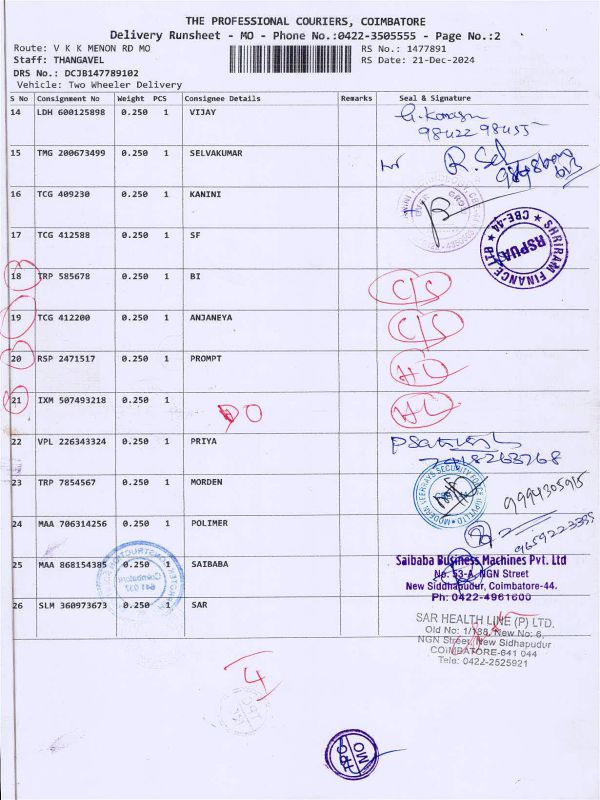 THE PROFESSIONAL COURIERS, COIMBATORE
Delivery Runsheet - MO - Phone No.:0422-3505555 - Page No.:2
Route: V K K MENON RD MO RS No.: 1477891
Staff: THANGAVEL RS Date: 21-Dec-2024
DRS No.: DCJB147789102
Vehicle: Two Wheeler Delivery
S No Consignment No Weight PCS Consignee Details Remarks Seal & Signature
14 LDH 600125898 0.250 1 VIJAY
98422 98455
15 TMG 200673499 0.250 1 SELVAKUMAR
R. Sel
16 TCG 409230 0.250 1 KANINI
17 TCG 412588 0.250 1 SF
SHRIRAM FINANCE
CBE-44
RSPUA
18 TRP 585678 0.250 1 BI C/S
19 TCG 412200 0.250 1 ANJANEYA C/S
20 RSP 2471517 0.250 1 PROMPT
21 IXM 507493218 0.250 1
DO
22 VPL 226343324 0.250 1 PRIYA
23 TRP 7854567 0.250 1 MORDEN
9994305915
24 MAA 706314256 0.250 1 POLIMER
9659223395
25 MAA 868154385 0.250 1 SAIBABA
Saibaba Business Machines Pvt. Ltd
No. 53-A, NGN Street
New Siddhapudur, Coimbatore-44.
Ph: 0422-4961600
26 SLM 360973673 0.250 1 SAR
SAR HEALTH LINE (P) LTD.
Old No: 1/138, New No: 6,
NGN Street, New Sidhapudur
COIMBATORE-641 044
Tele: 0422-2525921
4
MO